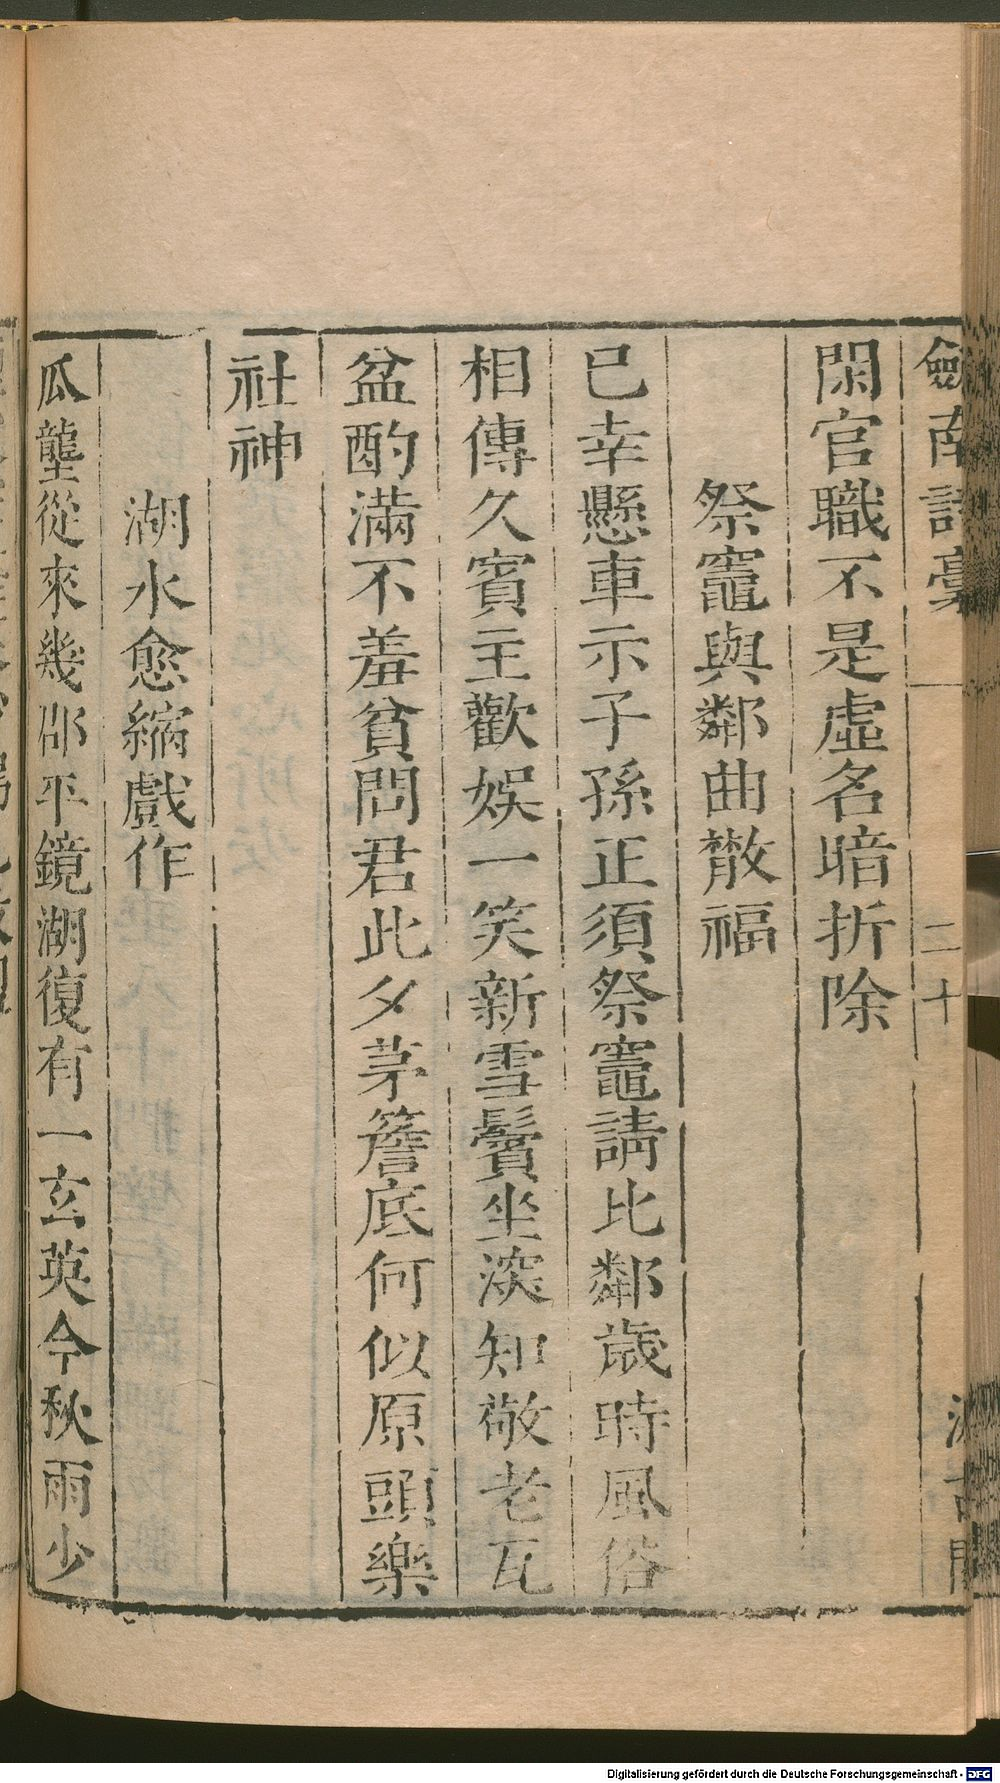 劔南詩藁 二十 汲古閣
閑官職不是虛名暗折除
祭竈與鄰曲散福
已幸懸車示子孫正須祭竈請比鄰歲時風俗
相傳久賓主歡娛一笑新雪鬢坐深知敬老瓦
盆酌滿不羞貧問君此夕茅簷底何似原頭樂
社神
湖水愈縮戲作
瓜壟從來幾邵平鏡湖復有一玄英今秋雨少
Digitalisierung gefördert durch die Deutsche Forschungsgemeinschaft - DFG